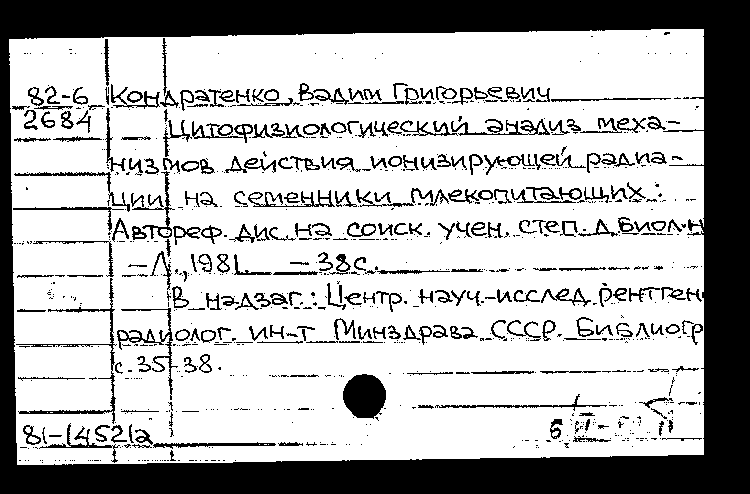 82-6 Кондратенко, Вадим Григорьевич
2684 Цитофизиологический анализ меха-
низмов действия ионизирующей радиа-
ции на семенники млекопитающих:
Автореф. дис. на соиск. учен. степ. д. биол. н
– Л., 1981. – 38 с.
В надзаг.: Центр. науч.-исслед. рентген
радиолог. ин-т Минздрава СССР. Библиогр
с. 35-38.
81-14521а